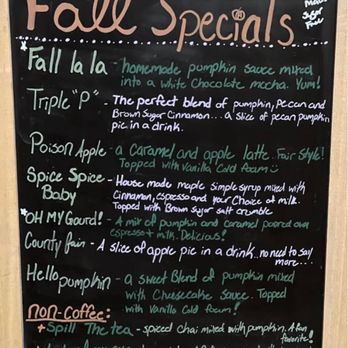 Fall Specials
Made
Sugar
Free
*Fall la la - homemade pumpkin sauce mixed
into a white Chocolate mocha. Yum!
Triple "P" - The perfect blend of pumpkin, pecan and
Brown Sugar Cinnamon... a slice of pecan pumpkin
pie in a drink.
Poison Apple - a Caramel and apple latte. Fair Style!
Topped with Vanilla Cold foam
Spice Spice - House made maple simple syrup mixed with
Baby Cinnamon, espresso and your Choice of milk.
Topped with Brown sugar salt crumble
*OH MY Gourd! - A mix of pumpkin and caramel poured over
espresso + milk. Delicious!
County fair - A slice of apple pie in a drink... no need to say
more....!
Hello pumpkin - a sweet Blend of pumpkin mixed
with Cheesecake Sauce. Topped
with Vanilla Cold foam!
non-coffee:
+ Spill The tea - spiced chai mixed with pumpkin. A fan
favorite!